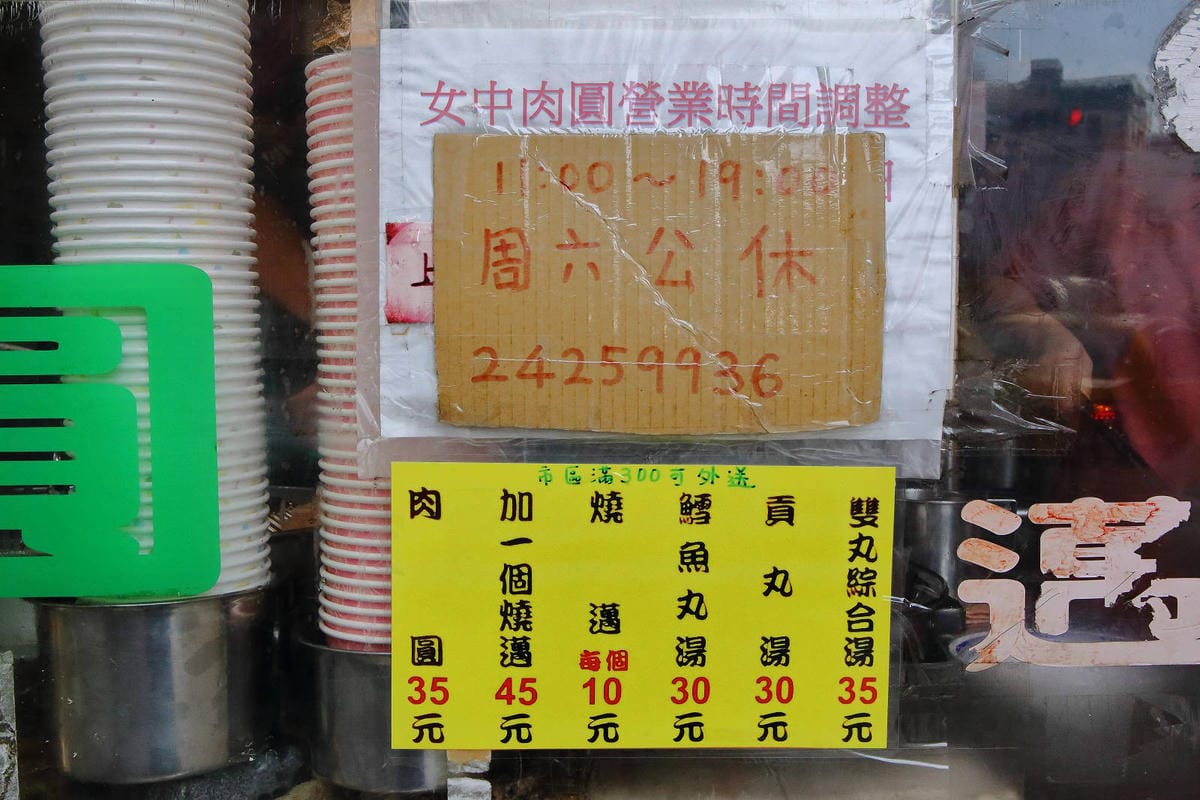 女中肉圓營業時間調整
11:00~19:00
周六公休
24259936
上
市區滿300可外送
肉圓 35元
加一個燒邁 45元
燒邁 每個 10元
鱈魚丸湯 30元
貢丸湯 30元
雙丸綜合湯 35元
圓